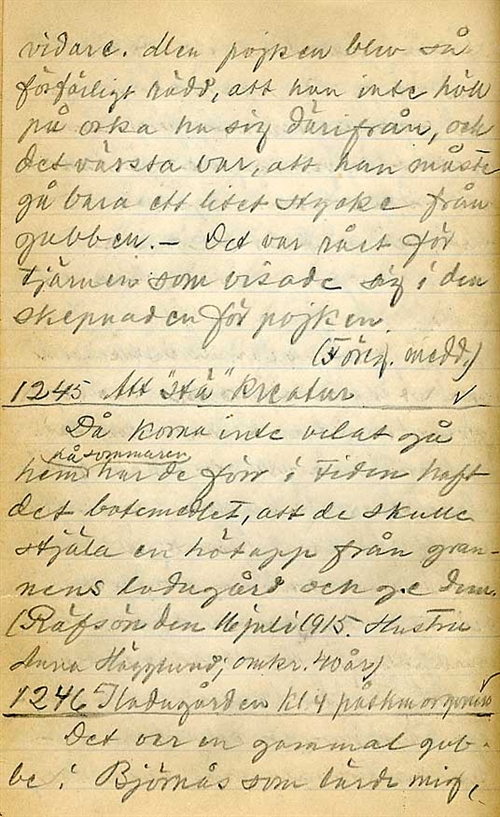 vidare. Men pojken blev så
förfärligt rädd, att han inte höll
på orka ha sig därifrån, och
det värsta var, att han måste
gå bara ett litet stycke från
gubben. – Det var rået för
tjärnen som visade sig i den
skepnaden för pojken.
(Föreg. medd.)
1245 Att "stä" kreatur ✓
Då korna inte velat gå
på sommaren
hem har de förr i tiden haft
det botemedlet, att de skulle
stjäla en hötapp från gran-
nens ladugård och ge dem.
(Räfsön den 16 juli 1915. Hustru
Anna Hägglund, omkr. 40 år)
1246 I ladugården kl 4 påskmorgonen ✓
Det var en gammal gub-
be i Björnås som lärde mig,